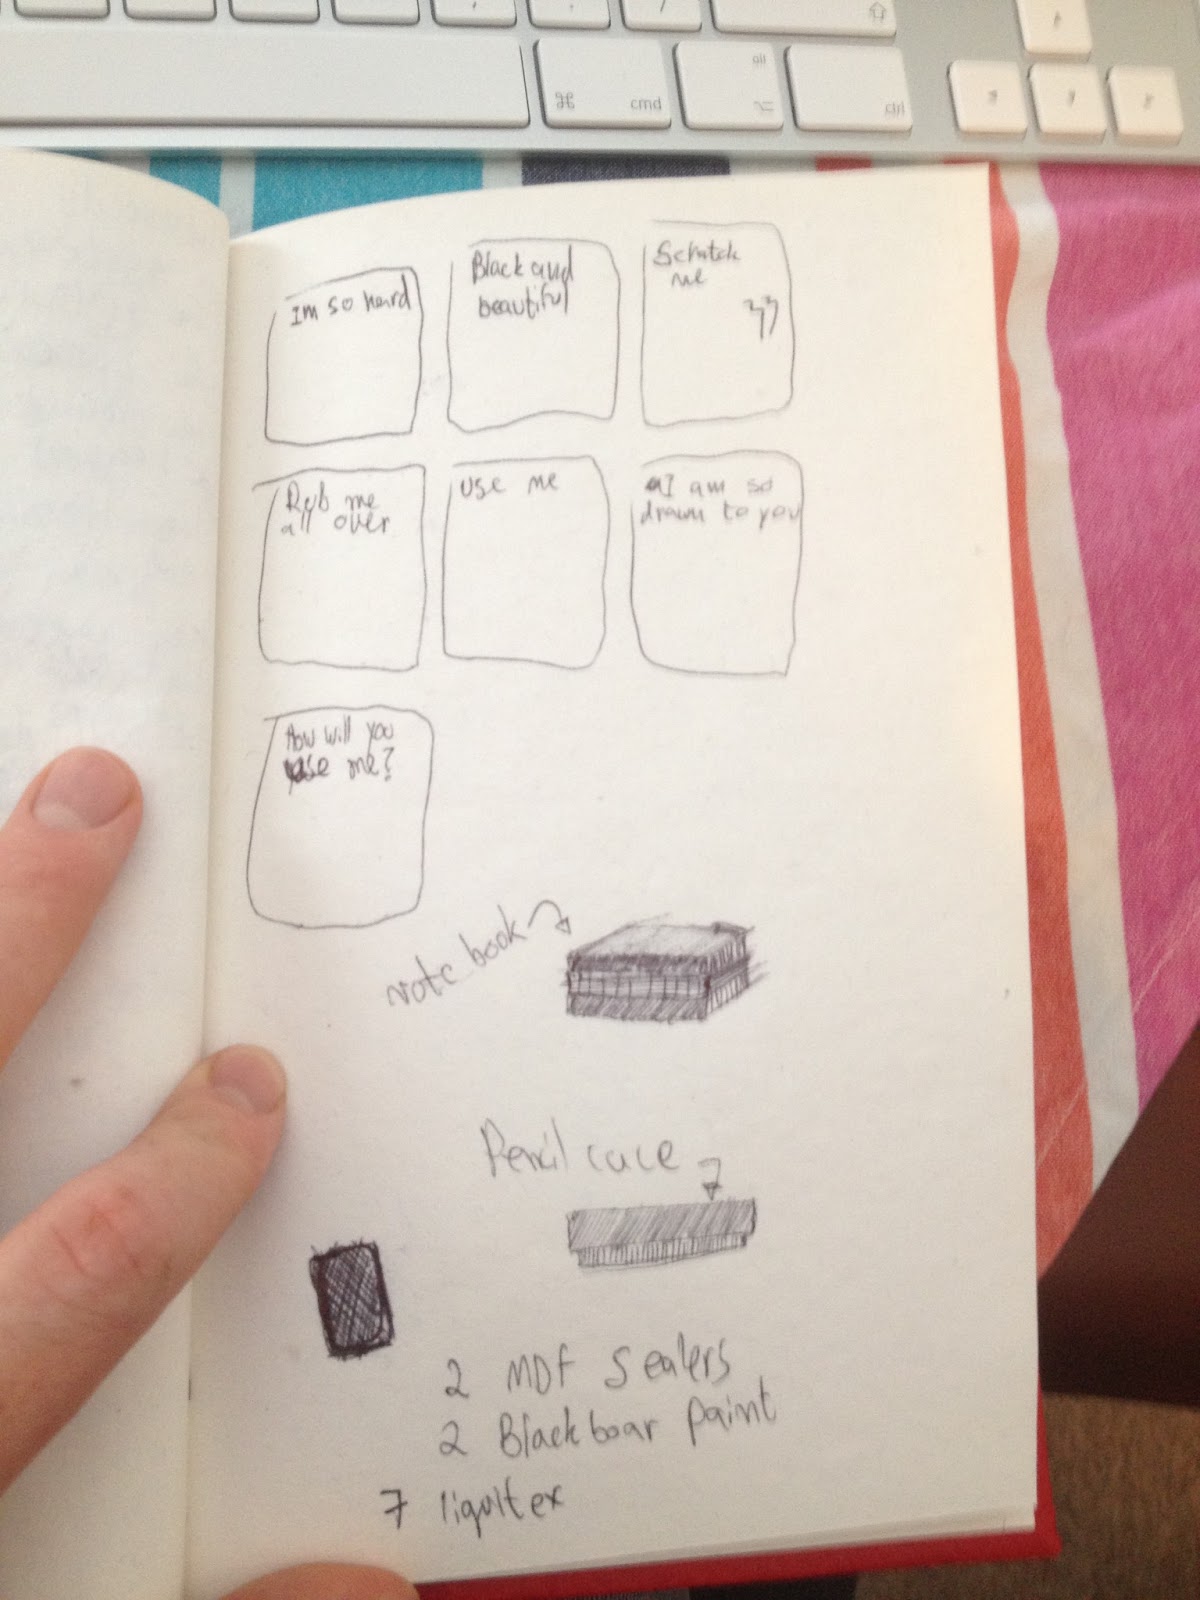 ⌘ cmd
alt ⌥
ctrl
Im so hard
Black and
beautiful
Scratch
me
Rub me
all over
use me
I am so
drawn to you
How will you
use me?
note book
Pencil cace
2 MDF Sealers
2 Blackboar paint
7 liquitex